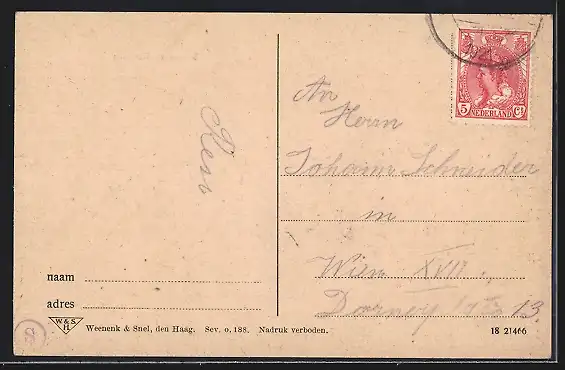 5 Ct
NEDERLAND
An
Herrn
Johann Schneider
in
Wien XVII.
13
naam
adres
W. & S.
H.
Weenenk & Snel, den Haag. Sev. o, 188. Nadruk verboden.
18 21466